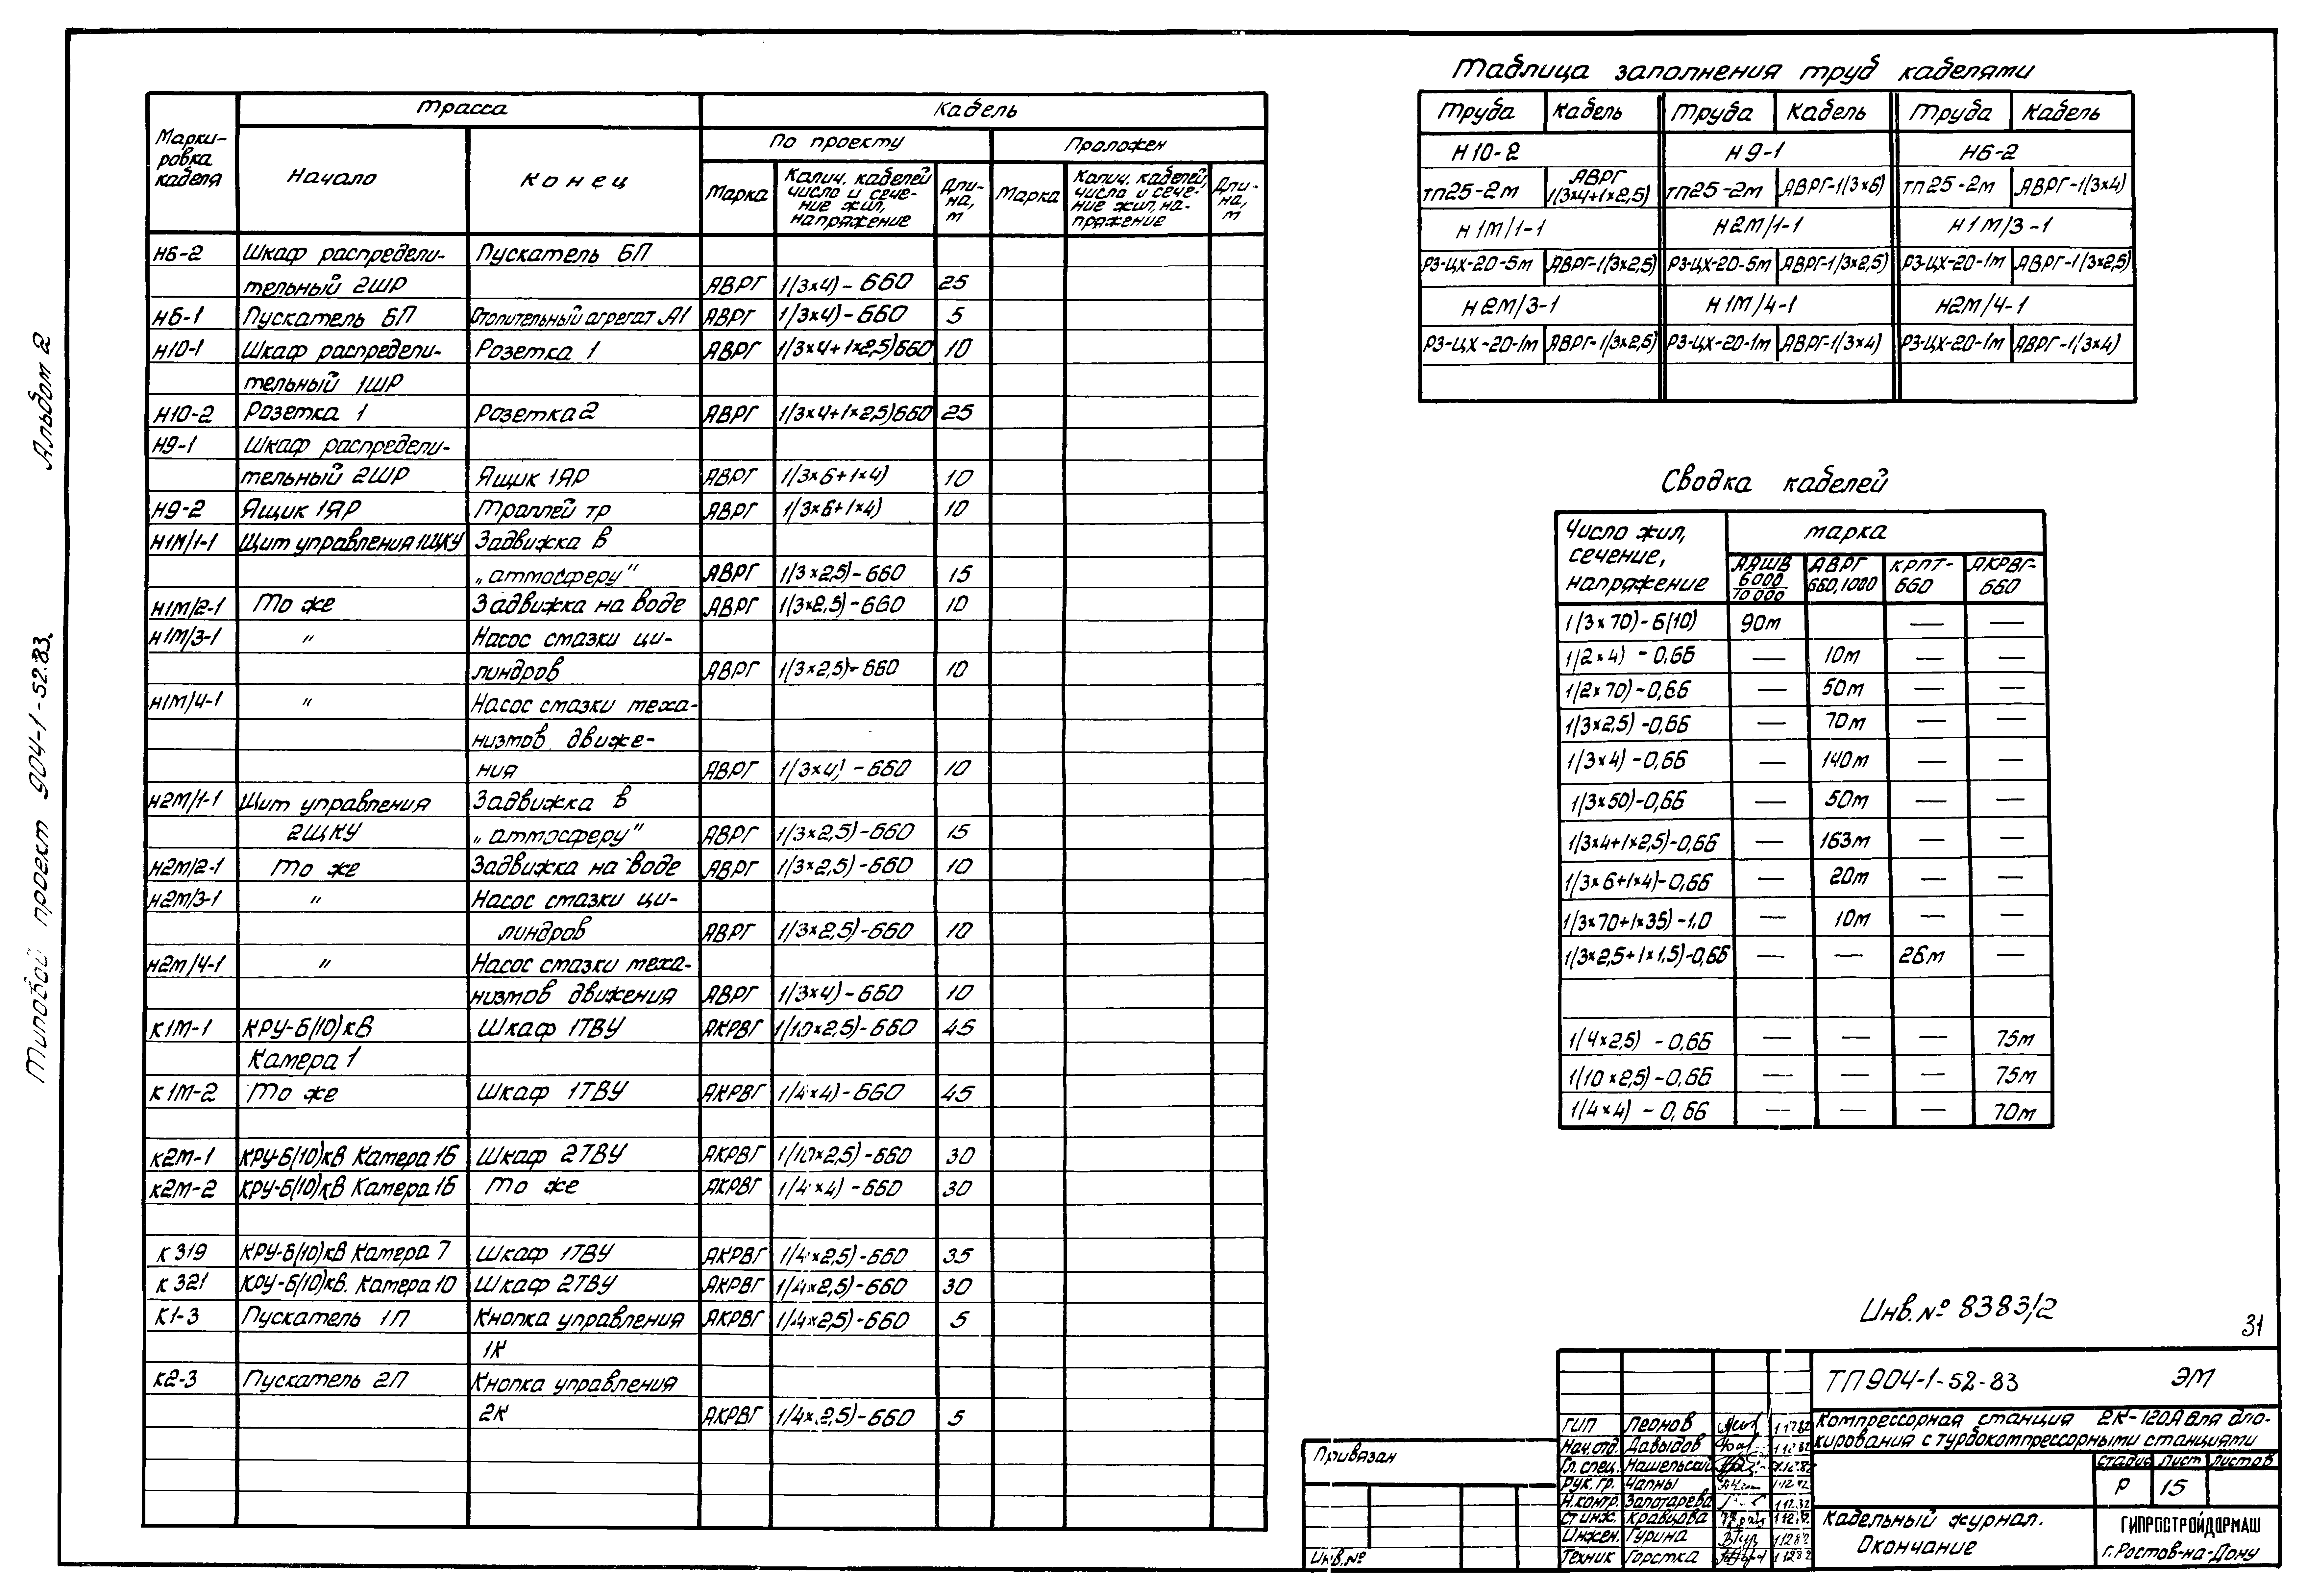 Альбом 2
Типовой проект 904-1-52.83.
Марки-
ровка
кабеля
Трасса
Кабель
Начало
Конец
По проекту
Проложен
Марка
Колич. кабелей
число и сече-
ние жил,
напряжение
Дли-
на,
м
Марка
Колич. кабелей
число и сече-
ние жил, на-
пряжение
Дли-
на,
м
Н6-2 Шкаф распредели- Пускатель 6П
тельный 2ШР АВРГ 1(3×4)-660 25
Н6-1 Пускатель 6П Отопительный агрегат А1 АВРГ 1(3×4)-660 5
Н10-1 Шкаф распредели- Розетка 1 АВРГ 1(3×4+1×2,5)660 10
тельный 1ШР
Н10-2 Розетка 1 Розетка 2 АВРГ 1(3×4+1×2,5)660 25
Н9-1 Шкаф распредели-
тельный 2ШР Ящик 1ЯР АВРГ 1(3×6+1×4) 10
Н9-2 Ящик 1ЯР Троллей тр АВРГ 1(3×6+1×4) 10
Н1М/1-1 Щит управления 1ЩКУ Задвижка в
„атмосферу" АВРГ 1(3×2,5)-660 15
Н1М/2-1 То же Задвижка на воде АВРГ 1(3×2,5)-660 10
Н1М/3-1 " Насос смазки ци-
линдров АВРГ 1(3×2,5)-660 10
Н1М/4-1 " Насос смазки меха-
низмов движе-
ния АВРГ 1(3×4)-660 10
Н2М/1-1 Щит управления Задвижка в
2ЩКУ „атмосферу" АВРГ 1(3×2,5)-660 15
Н2М/2-1 То же Задвижка на воде АВРГ 1(3×2,5)-660 10
Н2М/3-1 " Насос смазки ци-
линдров АВРГ 1(3×2,5)-660 10
Н2М/4-1 " Насос смазки меха-
низмов движения АВРГ 1(3×4)-660 10
К1М-1 КРУ-6(10)кВ Шкаф 1ТВУ АКРВГ 1(10×2,5)-660 45
Камера 1
К1М-2 То же Шкаф 1ТВУ АКРВГ 1(4×4)-660 45
К2М-1 КРУ-6(10)кВ Камера 16 Шкаф 2ТВУ АКРВГ 1(10×2,5)-660 30
К2М-2 КРУ-6(10)кВ Камера 16 То же АКРВГ 1(4×4)-660 30
К 319 КРУ-6(10)кВ Камера 7 Шкаф 1ТВУ АКРВГ 1(4×2,5)-660 35
К 321 КРУ-6(10)кВ. Камера 10 Шкаф 2ТВУ АКРВГ 1(4×2,5)-660 30
К1-3 Пускатель 1П Кнопка управления АКРВГ 1(4×2,5)-660 5
1К
К2-3 Пускатель 2П Кнопка управления
2К АКРВГ 1(4×2,5)-660 5
Таблица заполнения труб кабелями
Труба Кабель Труба Кабель Труба Кабель
Н10-2 Н9-1 Н6-2
тп25-2м АВРГ 1(3×4+1×2,5) тп25-2м АВРГ-1(3×6) тп25-2м АВРГ-1(3×4)
Н1М/1-1 Н2М/1-1 Н1М/3-1
РЗ-ЦХ-20-5м АВРГ-1(3×2,5) РЗ-ЦХ-20-5м АВРГ-1(3×2,5) РЗ-ЦХ-20-1м АВРГ-1(3×2,5)
Н2М/3-1 Н1М/4-1 Н2М/4-1
РЗ-ЦХ-20-1м АВРГ-1(3×2,5) РЗ-ЦХ-20-1м АВРГ-1(3×4) РЗ-ЦХ-20-1м АВРГ-1(3×4)
Сводка кабелей
Число жил,
сечение,
напряжение
марка
ААШВ
6000
10000
АВРГ
660, 1000
КРПТ-
660
АКРВГ-
660
1(3×70)-6(10) 90м — —
1(2×4)-0,66 — 10м — —
1(2×70)-0,66 — 50м — —
1(3×2,5)-0,66 — 70м — —
1(3×4)-0,66 — 140м — —
1(3×50)-0,66 — 50м — —
1(3×4+1×2,5)-0,66 — 163м — —
1(3×6+1×4)-0,66 — 20м — —
1(3×70+1×35)-1,0 — 10м — —
1(3×2,5+1×1,5)-0,66 — — 26м —
1(4×2,5)-0,66 — — — 75м
1(10×2,5)-0,66 — — — 75м
1(4×4)-0,66 — — — 70м
Инв. № 8383/2
31
ТП904-1-52-83 ЭМ
Компрессорная станция 2К-120А для бло-
кирования с турбокомпрессорными станциями
Стадия Лист Листов
Р 15
Кабельный журнал.
Окончание
ГИПРОСТРОЙДОРМАШ
г. Ростов-на-Дону
ГИП Леонов
Нач. отд. Давыдов
Гл. спец. Нашельский
Рук. гр. Чапны
Н.контр. Золотарева
Ст инж. Кравцова
Инжен. Гурина
Техник Горстка
Привязан
Инв. №